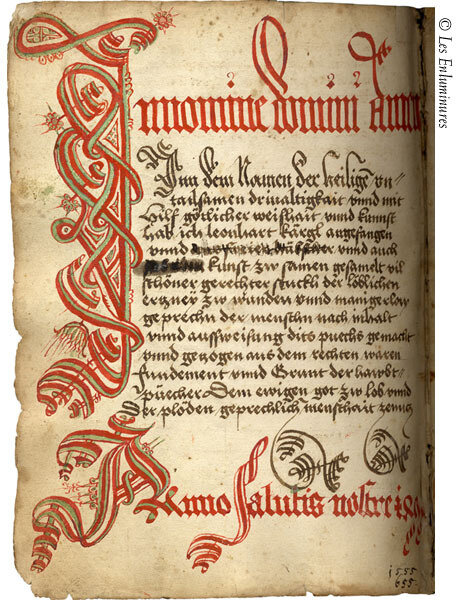 In nomine domini Amen
In dem Namen der heilige un=
tailsamen drivaltigkait vnnd mit
Hilf götlicher weishait vnd kunnst
hab ich leonhart kärgl angefangen
vnnd vnnd auch
kunst zw samen gesamelt vil
schöner gerechter stuckh der löblichen
ertzney zw wunden vnnd manigerlay
geprechn der menschn nach inhalt
vnnd aufweisung dits puechs gemacht
vnnd gezogen aus dem rechten waren
fundement vnnd Grunt der hawbt=
püecher Dem ewigen got zw lob vnnd
der plöden geprechlich menschait
Anno salutis nostre
1555
655
© Les Enluminures